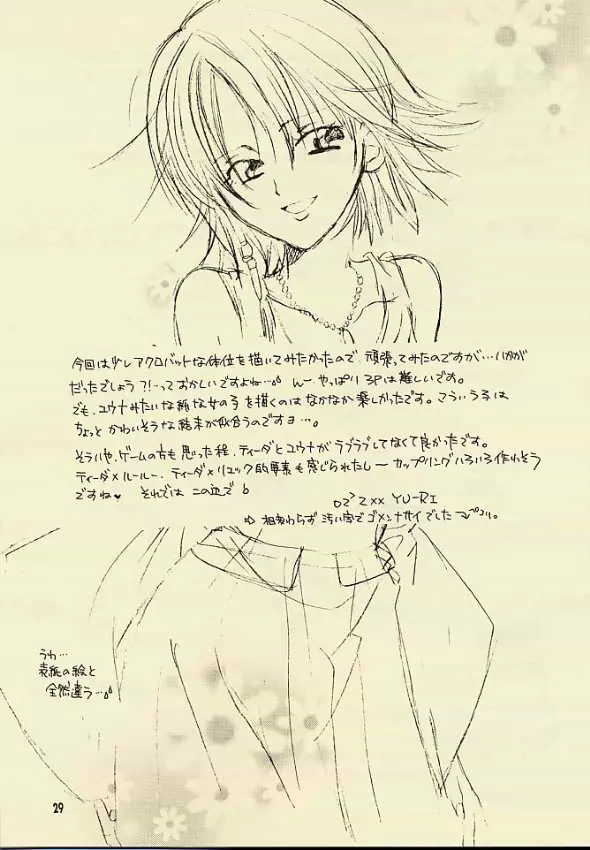 今回は少しアクロバットな体位を描いてみたかったので、頑張ってみたのですが…いかが
だったでしょう?!…っておかしいですよね… んー、やっぱり3Pは難しいです。
でも、ユウナみたいな純な女の子を描くのはなかなか楽しかったです。こういうコは
ちょっとかわいそうな結末が似合うのですヨ…。
そういや、ゲームの方も思った程、ティーダとユウナがラブラブしてなくて良かったです。
ティーダ×ルールー、ティーダ×リュック的要素も感じられたし〜 カップリングいろいろ作れそう
ですね♥ それでは この辺で
OZ'Z×× YU-RI
⇨ 相変わらず汚い字でゴメンナサイでした
うわ…
表紙の絵と
全然違う…
29